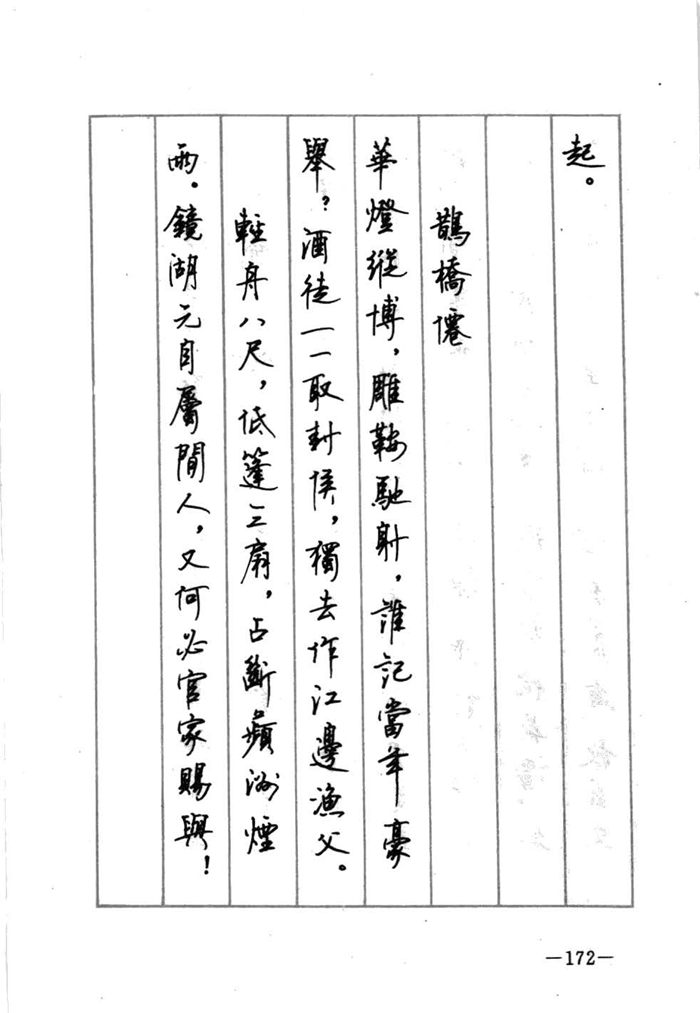 起。
鵲橋僊
華燈縱博，雕鞍馳射，誰記當年豪
舉？酒徒一一取封侯，獨去作江邊漁父。
輕舟八尺，低篷三扇，占斷蘋洲煙
雨。鏡湖元自屬閒人，又何必官家賜與！
—172—